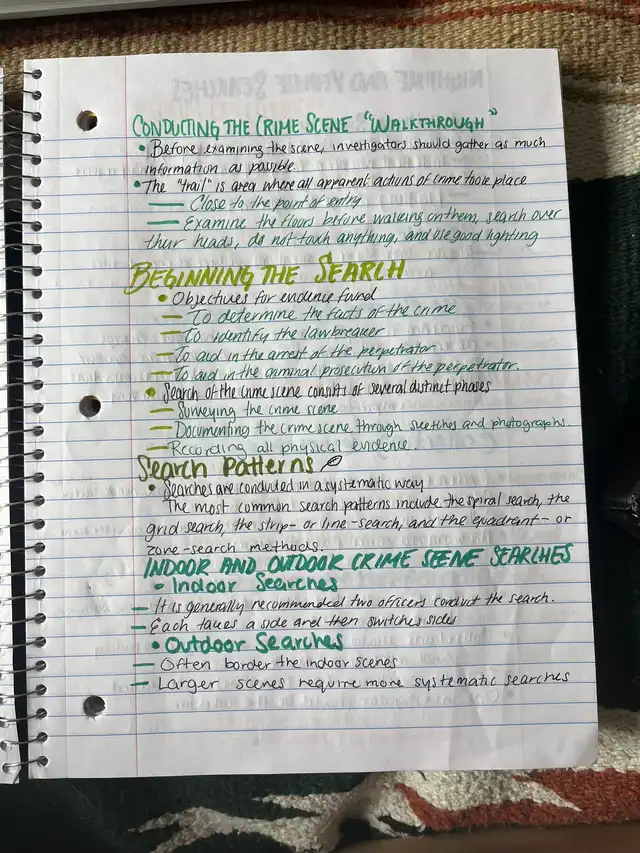 CONDUCTING THE CRIME SCENE "WALKTHROUGH"
• Before examining the scene, investigators should gather as much
information as possible.
• The "trail" is area where all apparent actions of crime took place
— Close to the point of entry
— Examine the floors before walking on them, search over
their heads, do not touch anything, and use good lighting
BEGINNING THE SEARCH
• Objectives for evidence fund
— To determine the facts of the crime
— To identify the lawbreaker
— To aid in the arrest of the perpetrator
— To aid in the criminal prosecution of the perpetrator.
• Search of the crime scene consists of several distinct phases
— Surveying the crime scene
— Documenting the crime scene through sketches and photographs.
— Recording all physical evidence.
Search Patterns
• Searches are conducted in a systematic way
The most common search patterns include the spiral search, the
grid search, the strip- or line-search, and the quadrant- or
zone-search methods.
INDOOR AND OUTDOOR CRIME SCENE SEARCHES
• Indoor Searches
— It is generally recommended two officers conduct the search.
— Each takes a side and then switches sides
• Outdoor Searches
— Often border the indoor scenes
— Larger scenes require more systematic searches